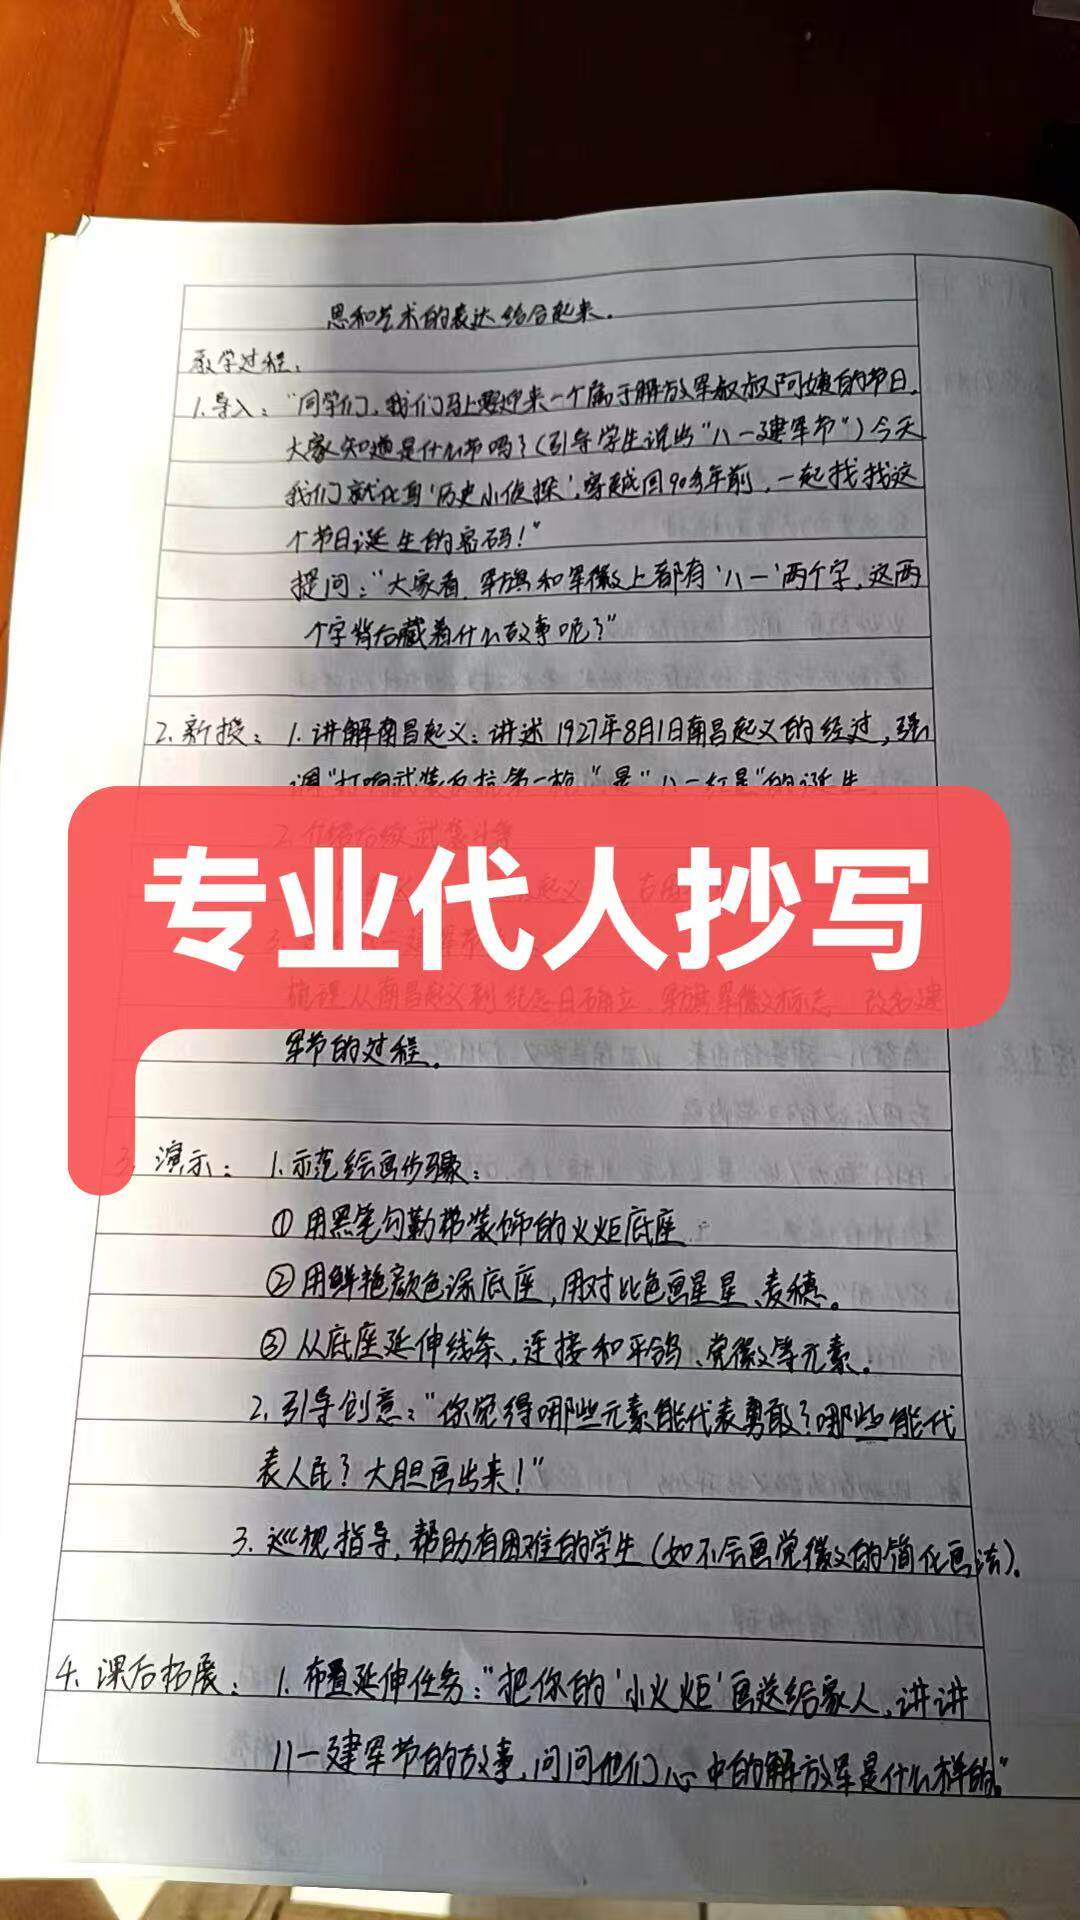 思和艺术的表达结合起来。
教学过程：
1.导入："同学们，我们马上要迎来一个属于解放军叔叔阿姨的节日，
大家知道是什么节吗？(引导学生说出"八一建军节")今天
我们就化身'历史小侦探'，穿越回90多年前，一起找找这
个节日诞生的密码！"
提问："大家看，军旗和军徽上都有'八一'两个字，这两
个字背后藏着什么故事呢？"
2.新授：1.讲解南昌起义：讲述1927年8月1日南昌起义的经过，强
调"打响武装反抗第一枪"是"八一红星"的诞生。
2.介绍后续武装斗争
专业代人抄写
起义
建军节
梳理从南昌起义到纪念日确立、军旗军徽标志、改名建
军节的过程。
3.演示：1.示范绘画步骤：
①用黑笔勾勒带装饰的火炬底座
②用鲜艳颜色涂底座，用对比色画星星、麦穗。
③从底座延伸线条，连接和平鸽、党徽等元素。
2.引导创意："你觉得哪些元素能代表勇敢？哪些能代
表人民？大胆画出来！"
3.巡视指导，帮助有困难的学生(如不会画党徽的简化画法)。
4.课后拓展：1.布置延伸任务："把你的'小火炬'画送给家人，讲讲
八一建军节的故事，问问他们心中的解放军是什么样的。"